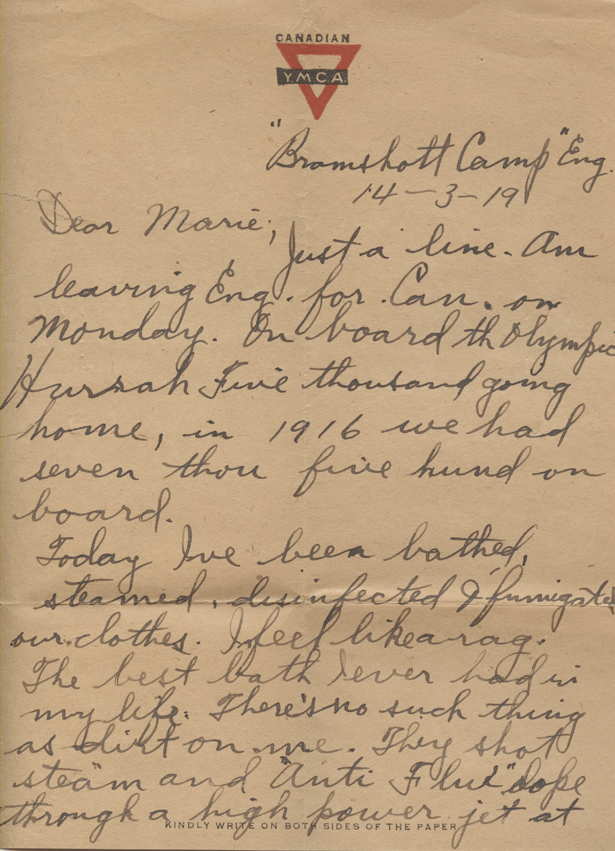 CANADIAN
Y.M.C.A.
"Bramshott Camp" Eng.
14-3-19
Dear Marie;
Just a line. Am
leaving Eng. for Can. on
Monday. On board th Olympic
Hurrah Five thousand going
home, in 1916 we had
seven thou five hund on
board.
Today I've been bathed,
steamed, disinfected & fumigated
our clothes. I feel like a rag.
The best bath I ever had in
my life. There's no such thing
as dirt on me. They shot
steam and "Anti Flu" dope
through a high power jet at
KINDLY WRITE ON BOTH SIDES OF THE PAPER